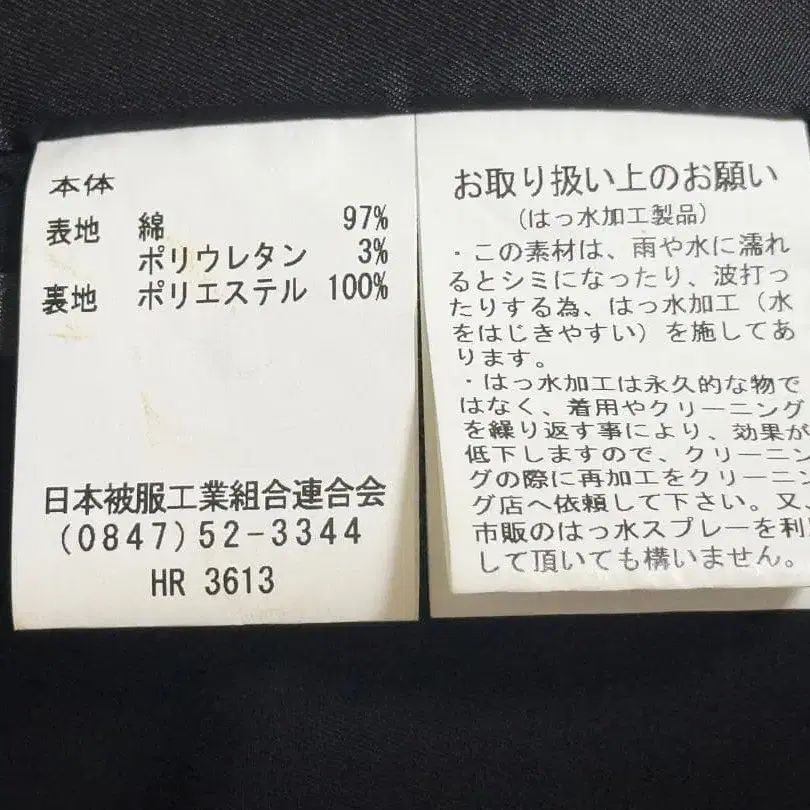 本体
表地 綿 97%
ポリウレタン 3%
裏地 ポリエステル 100%
日本被服工業組合連合会
(0847)52-3344
HR 3613
お取り扱い上のお願い
(はっ水加工製品)
・この素材は、雨や水に濡れ
るとシミになったり、波打っ
たりする為、はっ水加工(水
をはじきやすい)を施してあ
ります。
・はっ水加工は永久的な物で
はなく、着用やクリーニング
を繰り返す事により、効果が
低下しますので、クリーニン
グの際に再加工をクリーニン
グ店へ依頼して下さい。又、
市販のはっ水スプレーを利
して頂いても構いません。